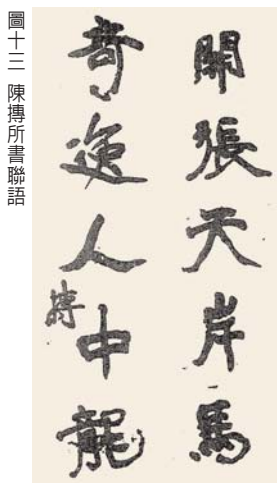 開張天岸馬
奇逸人中龍
摶
圖十三 陳摶所書聯語